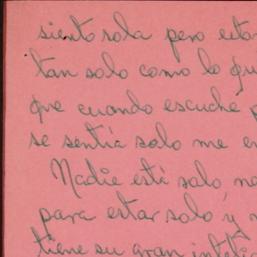 siento sola pero esto
tan solo como lo qu
que cuando escuché p
se sentía solo me en
Nadie está solo, na
para estar solo y
tiene su gran inteli